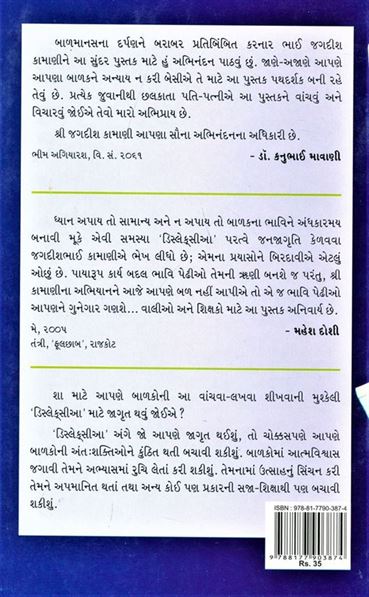 બાળમાનસના દર્પણને બરાબર પ્રતિબિંબિત કરનાર ભાઈ જગદીશ
કામાણીને આ સુંદર પુસ્તક માટે હું અભિનંદન પાઠવું છું. જાણે-અજાણે આપણે
આપણા બાળકને અન્યાય ન કરી બેસીએ તે માટે આ પુસ્તક પથદર્શક બની રહે
તેવું છે. પ્રત્યેક જુવાનીથી છલકાતા પતિ-પત્નીએ આ પુસ્તકને વાંચવું અને
વિચારવું જોઈએ તેવો મારો અભિપ્રાય છે.
શ્રી જગદીશ કામાણી આપણા સૌના અભિનંદનના અધિકારી છે.
ભીમ અગિયારશ, વિ. સં. ૨૦૬૧ - ડૉ. કનુભાઈ માવાણી
ધ્યાન અપાય તો સામાન્ય અને ન અપાય તો બાળકના ભાવિને અંધકારમય
બનાવી મૂકે એવી સમસ્યા 'ડિસ્લેક્સીઆ' પરત્વે જનજાગૃતિ કેળવવા
જગદીશભાઈ કામાણીએ ભેખ લીધો છે; એમના પ્રયાસોને બિરદાવીએ એટલું
ઓછું છે. પાયારૂપ કાર્ય બદલ ભાવિ પેઢીઓ તેમની ઋણી બનશે જ પરંતુ, શ્રી
કામાણીના અભિયાનને આજે આપણે બળ નહીં આપીએ તો એ જ ભાવિ પેઢીઓ
આપણને ગુનેગાર ગણશે... વાલીઓ અને શિક્ષકો માટે આ પુસ્તક અનિવાર્ય છે.
મે, ૨૦૦૫ - મહેશ દોશી
તંત્રી, 'ફૂલછાબ', રાજકોટ
શા માટે આપણે બાળકોની આ વાંચવા-લખવા શીખવાની મુશ્કેલી
'ડિસ્લેક્સીઆ' માટે જાગૃત થવું જોઈએ ?
'ડિસ્લેક્સીઆ' અંગે જો આપણે જાગૃત થઈશું, તો ચોક્કસપણે આપણે
બાળકોની અંતઃશક્તિઓને કુંઠિત થતી બચાવી શકીશું. બાળકોમાં આત્મવિશ્વાસ
જગાવી તેમને અભ્યાસમાં રુચિ લેતાં કરી શકીશું. તેમનામાં ઉત્સાહનું સિંચન કરી
તેમને અપમાનિત થતાં તથા અન્ય કોઈ પણ પ્રકારની સજા-શિક્ષાથી પણ બચાવી
શકીશું.
ISBN : 978-81-7790-387-4
9 788177 903874
Rs. 35